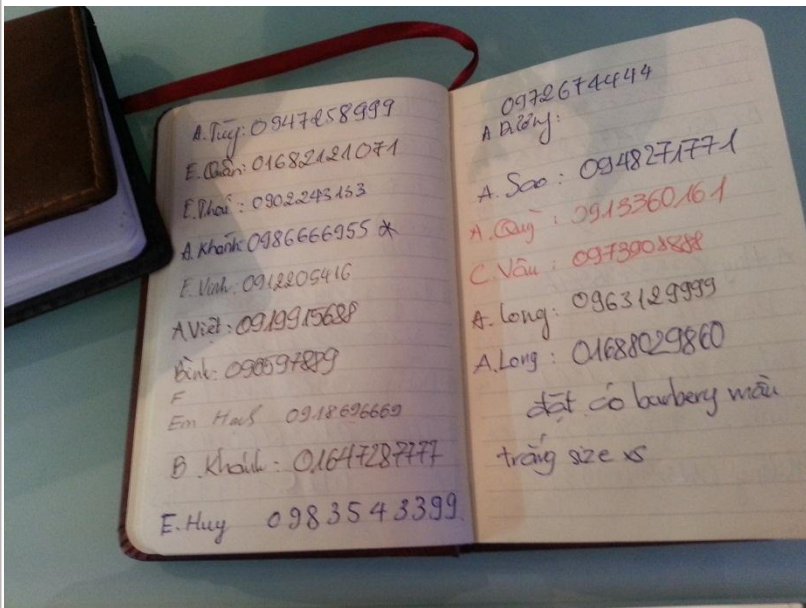 A. Tuý: 0947258999
E. Quân: 01682121071
E. Thái: 0902243153
A. Khánh: 0986666955 *
E. Vinh: 0912205416
A Việt: 0919915688
Bình: 090597889
F
Em 0918696669
B. Khánh: 01647287777
E. Huy 0983543399
0972674444
A Dương:
A. Sao: 0948271771
A. Quý: 0913360161
C. Vân: 0973908888
A. Long: 0963129999
A. Long: 01688029860
đặt có burbery màu
trắng size xs